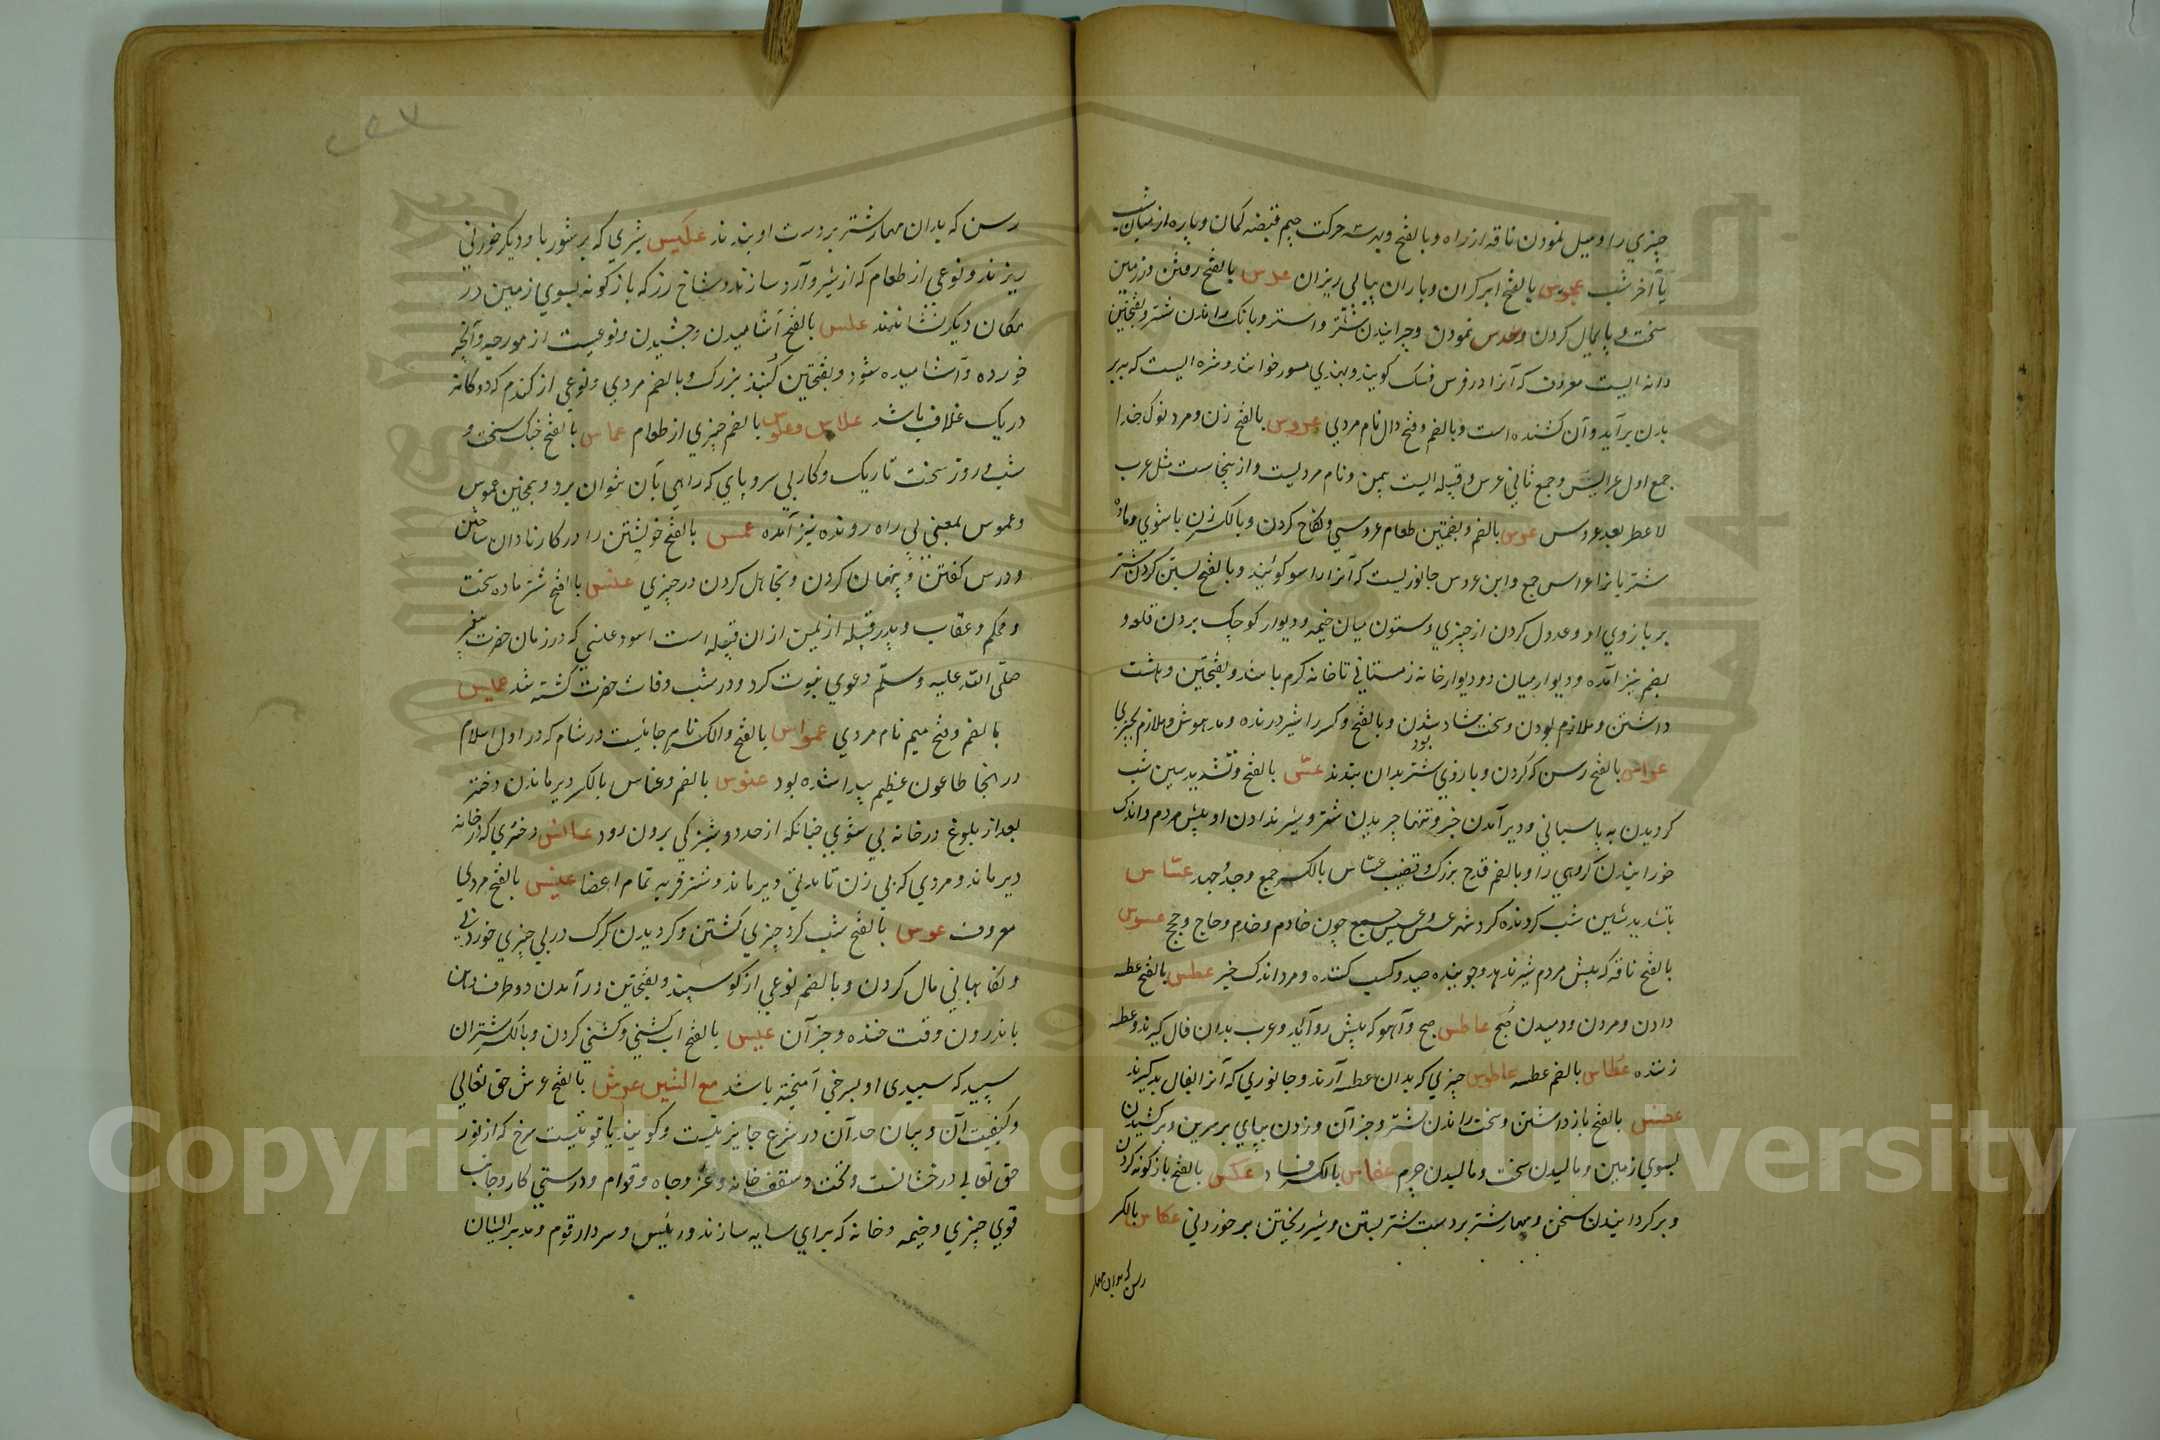 چیزی را و میل نمودن ناقه از راه و بالفتح و بدسته حرکت جیم قبضه کمان و پاره از میان شب
یا آخر شب عجوس بالفتح ابر کران و باران پیاپی ریزان عدس بالفتح رفتن در زمین
سخت و پایمال کردن و حدس نمودن و چرانیدن شتر و استر و بانک راندن شتر و بفتحتین
دانه ایست معروف که آنرا در فرس فسک کویند و بهندی مسور خوانند و بثره ایست که بر
بدن برآید و آن کشنده است و بالضم و فتح دال نام مردی عروس بالفتح زن و مرد نوکدخدا
جمع اول عرایس و جمع ثانی عرس و قبیله ایست بیمن و نام مردیست و از ینجاست مثل عرب
لا عطر بعد عروس عرس بالضم و بضمتین طعام عروسی و نکاح کردن و بالکسر زن با شوی و ماده
شتر با نر اعراس جمع و ابن عرس جانوریست که آنرا راسو کویند و بالفتح بستن کردن شتر
بر بازوی او و عدول کردن از چیزی و ستون میان خیمه و دیوار کوچک بردن قلعه و
بضم نیز آمده و دیوار میان دو دیوار خانه زمستانی تا خانه کرم باشد و بفتحتین دهشت
داشتن و ملازم بودن و سخت شاد شدن و بالفتح و کسر را شیر درنده و مدهوش و ملازم بچیزی
عراس بالفتح رسن که کردن و بازوی شتر بدان بندند عسّ بالفتح و تشدید سین شب
کردیدن به پاسبانی و دیر آمدن خبر و تنها چریدن شتر و شیر ندادن او پیش مردم و اندک
خورانیدن کروهی را و بالضم قدح بزرک و قضیب عساس بالکسر جمع و جد و جهد عسّاس
بتشدید سین شب کردنده کرد شهر عسس و عسیس جمع چون خادم و خدم و حاج و حجج عسوس
بالفتح ناقه که پیش مردم شیر ندهد و جوینده صید و کسب کننده و مرد اندک خیر عطس بالفتح عطسه
دادن و مردن و دمیدن صبح عاطس صبح و آهو که پیش رو آید و عرب بدان فال کیرند و عطسه
زننده عطاس بالضم عطسه عاطوس چیزی که بدان عطسه آرند و جانوری که آنرا بفال بد کیرند
عفس بالفتح باز داشتن و سخت راندن شتر و جز آن و زدن بپای بر سرین و بر کشیدن
بسوی زمین و مالیدن سخت و مالیدن چرم عفاس بالکسر فساد عکس بالفتح بازکونه کردن
و بر کردانیدن سخن و مهار شتر بر دست شتر بستن و شیر ریختن بر خوردنی عکاس بالکسر
رسن که بدان مهار
رسن که بدان مهار شتر بر دست او بندند عکیس شیری که بر شوربا و دیکر خوردنی
ریزند و نوعی از طعام که از شیر و آرد سازند و شاخ رز که بازکونه بسوی زمین در
مکان دیکر نشانند علس بالفتح آشامیدن و چشیدن و نوعیست از مورچه و آنچه
خورده و آشامیده شود و بفتحتین کنه بزرک و بالضم مردی و نوعی از کندم که دو دانه
در یک غلاف باشد علاس و علوس بالضم چیزی از طعام عماس بالفتح جنک سخت و
شب و روز سخت تاریک و کار بی سر و پای که راهی بآن نتوان برد و همچنین عموس
و عموس بمعنی بی راه رونده نیز آمده عمس بالفتح خویشتن را در کار نادان ساختن
و درس کفتن و پنهان کردن و تجاهل کردن در چیزی عنس بالفتح شتر ماده سخت
و محکم و عقاب و پدر قبیله از یمن از ان قبیله است اسود عنسی که در زمان حضرت پیغمبر
صلّی الله علیه و سلّم دعوی نبوت کرد و در شب وفات حضرت کشته شد عمیس
بالضم و فتح میم نام مردی عمواس بالفتح و الکسر نام جائیست در شام که در اول اسلام
در انجا طاعون عظیم پیدا شده بود عنوس بالضم و عناس بالکسر دیر ماندن دختر
بعد از بلوغ در خانه بی شوی چنانکه از حد دوشیزکی برون رود عانس دختری که در خانه
دیر ماند و مردی که بی زن تا مدتی دیر ماند و شتر فربه تمام اعضا عنبس بالفتح مردی
معروف عوس بالفتح شب کرد چیزی کشتن و کردیدن کرک در پی چیزی خوردنی
و نکاهبانی مال کردن و بالضم نوعی از کوسپند و بفتحتین در آمدن دو طرف دهن
باندرون وقت خنده و جز آن عیس بالفتح آب کشنی و کشنی کردن و بالکسر شتران
سپید که سپیدی او بسرخی آمیخته باشد مع الشین عرش بالفتح عرش حق تعالی
و کیفیت آن و بیان حد آن در شرع جایز نیست و کویند یاقوتیست سرخ که از نور
حق تعالی درخشانست و تخت و سقف خانه و عز و جاه و قوام و درستی کار و جانب
قوی چیزی و خیمه و خانه که برای سایه سازند و رئیس و سردار قوم و مدبر ایشان
Copyright © King Saud University